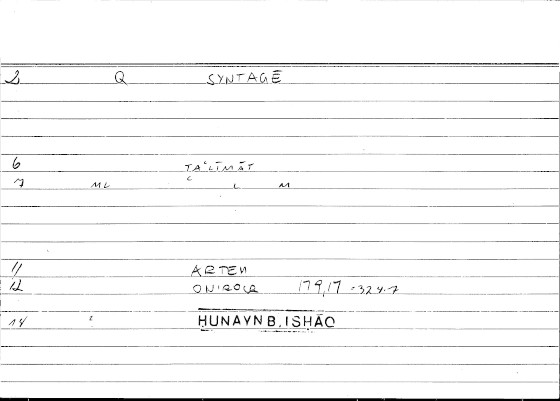 2 Q SYNTAGĒ
6 TAʿLĪMĀT
7 ML C L M
11 ARTEM
12 ONIROCR 179,17 = 324.7
14 c HUNAYN B. ISHĀQ